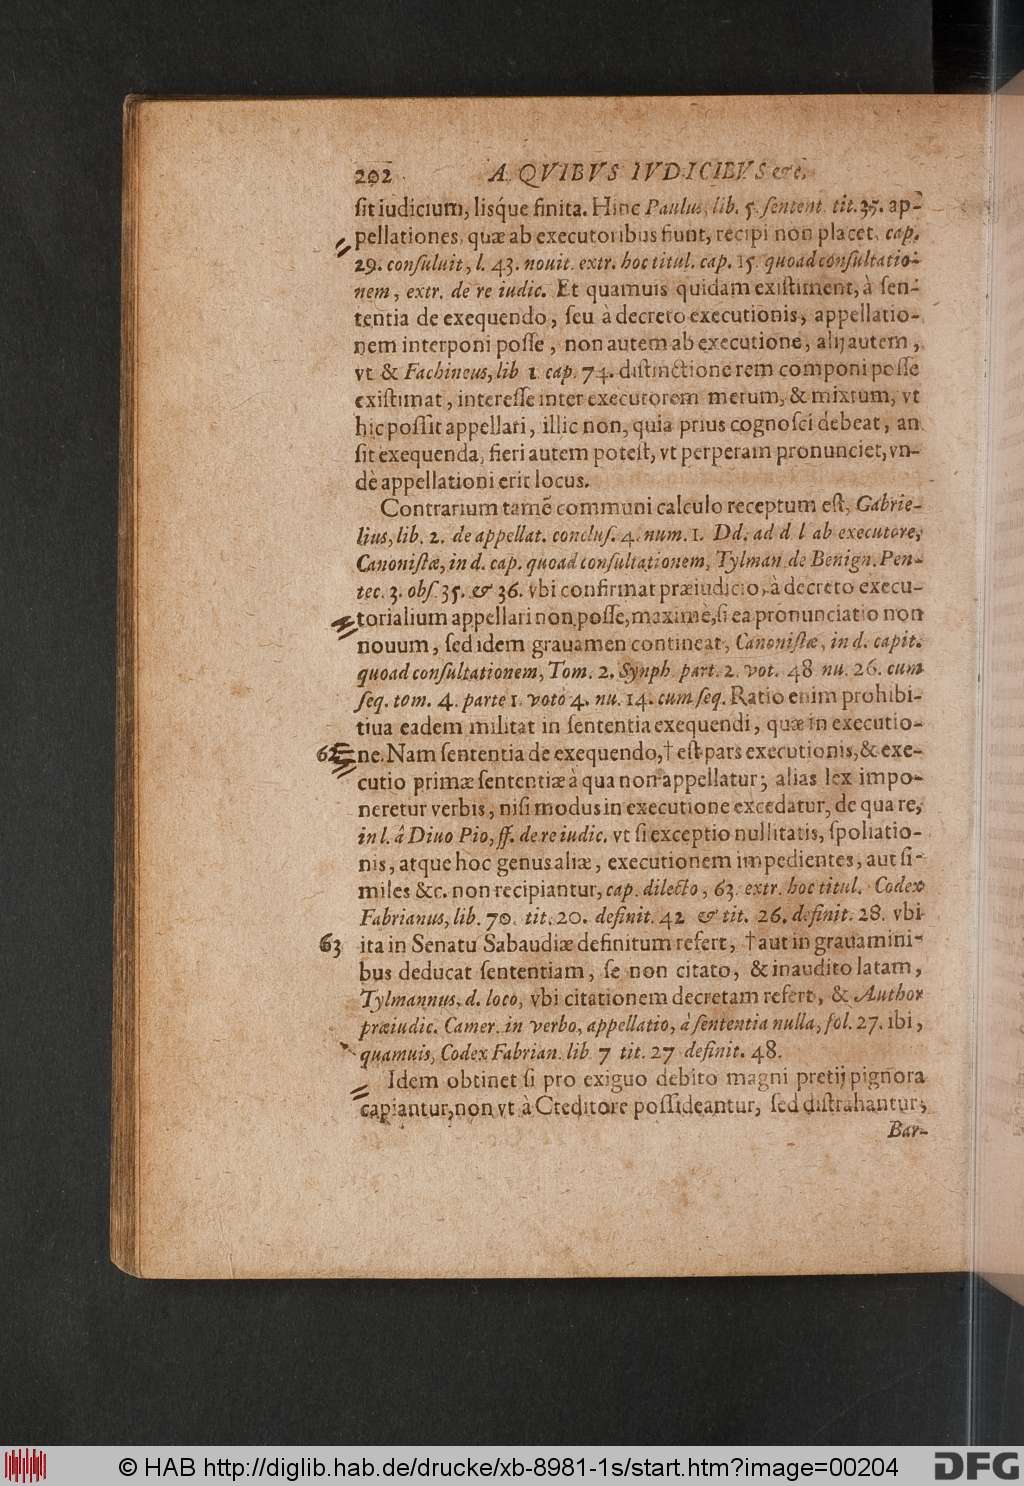 202 A QVIBVS IVDICIBVS &c.
ſit iudicium, lisq́ue finita. Hinc Paulus, lib. 5. ſentent. tit. 35. ap-
pellationes, quæ ab executoribus fiunt, recipi non placet, cap.
29. conſuluit, l. 43. nouit. extr. hoc titul. cap. 15. quoad conſultatio-
nem, extr. de re iudic. Et quamuis quidam exiſtiment, à ſen-
tentia de exequendo, ſeu à decreto executionis, appellatio-
nem interponi poſſe, non autem ab executione, alij autem,
vt & Fachineus, lib 1 cap. 74. diſtinctione rem componi poſſe
exiſtimat, intereſſe inter executorem merum, & mixtum, vt
hic poſſit appellari, illic non, quia prius cognoſci debeat, an
ſit exequenda, fieri autem poteſt, vt perperam pronunciet, vn-
dè appellationi erit locus.
Contrarium tamẽ communi calculo receptum eſt, Gabrie-
lius, lib. 2. de appellat. concluſ. 4. num. 1. Dd. ad d l ab executore,
Canoniſtæ, in d. cap. quoad conſultationem, Tylman de Benign. Pen-
tec. 3. obſ. 35. & 36. vbi confirmat præiudicio, à decreto execu-
torialium appellari non poſſe, maximè, ſi ea pronunciatio non
nouum, ſed idem grauamen contineat, Canoniſtæ, in d. capit.
quoad conſultationem, Tom. 2. Synph. part. 2. vot. 48 nu. 26. cum
ſeq. tom. 4. parte 1. voto 4. nu. 14. cum ſeq. Ratio enim prohibi-
tiua eadem militat in ſententia exequendi, quæ in executio-
62 ne. Nam ſententia de exequendo, † eſt pars executionis, & exe-
cutio primæ ſententiæ à qua non appellatur; alias lex impo-
neretur verbis, niſi modus in executione excedatur, de qua re,
in l. à Diuo Pio, ff. de re iudic. vt ſi exceptio nullitatis, ſpoliatio-
nis, atque hoc genus aliæ, executionem impedientes, aut ſi-
miles &c. non recipiantur, cap. dilecto, 63. extr. hoc titul. Codex
Fabrianus, lib. 70. tit. 20. definit. 42 & tit. 26. definit. 28. vbi
63 ita in Senatu Sabaudiæ definitum refert, † aut in grauamini-
bus deducat ſententiam, ſe non citato, & inaudito latam,
Tylmannus, d. loco, vbi citationem decretam refert, & Author
præiudic. Camer. in verbo, appellatio, à ſententia nulla, fol. 27. ibi,
quamuis, Codex Fabrian. lib 7 tit. 27 definit. 48.
Idem obtinet ſi pro exiguo debito magni pretij pignora
capiantur, non vt à Creditore poſſideantur, ſed diſtrahantur,
Bar-
© HAB http://diglib.hab.de/drucke/xb-8981-1s/start.htm?image=00204
DFG